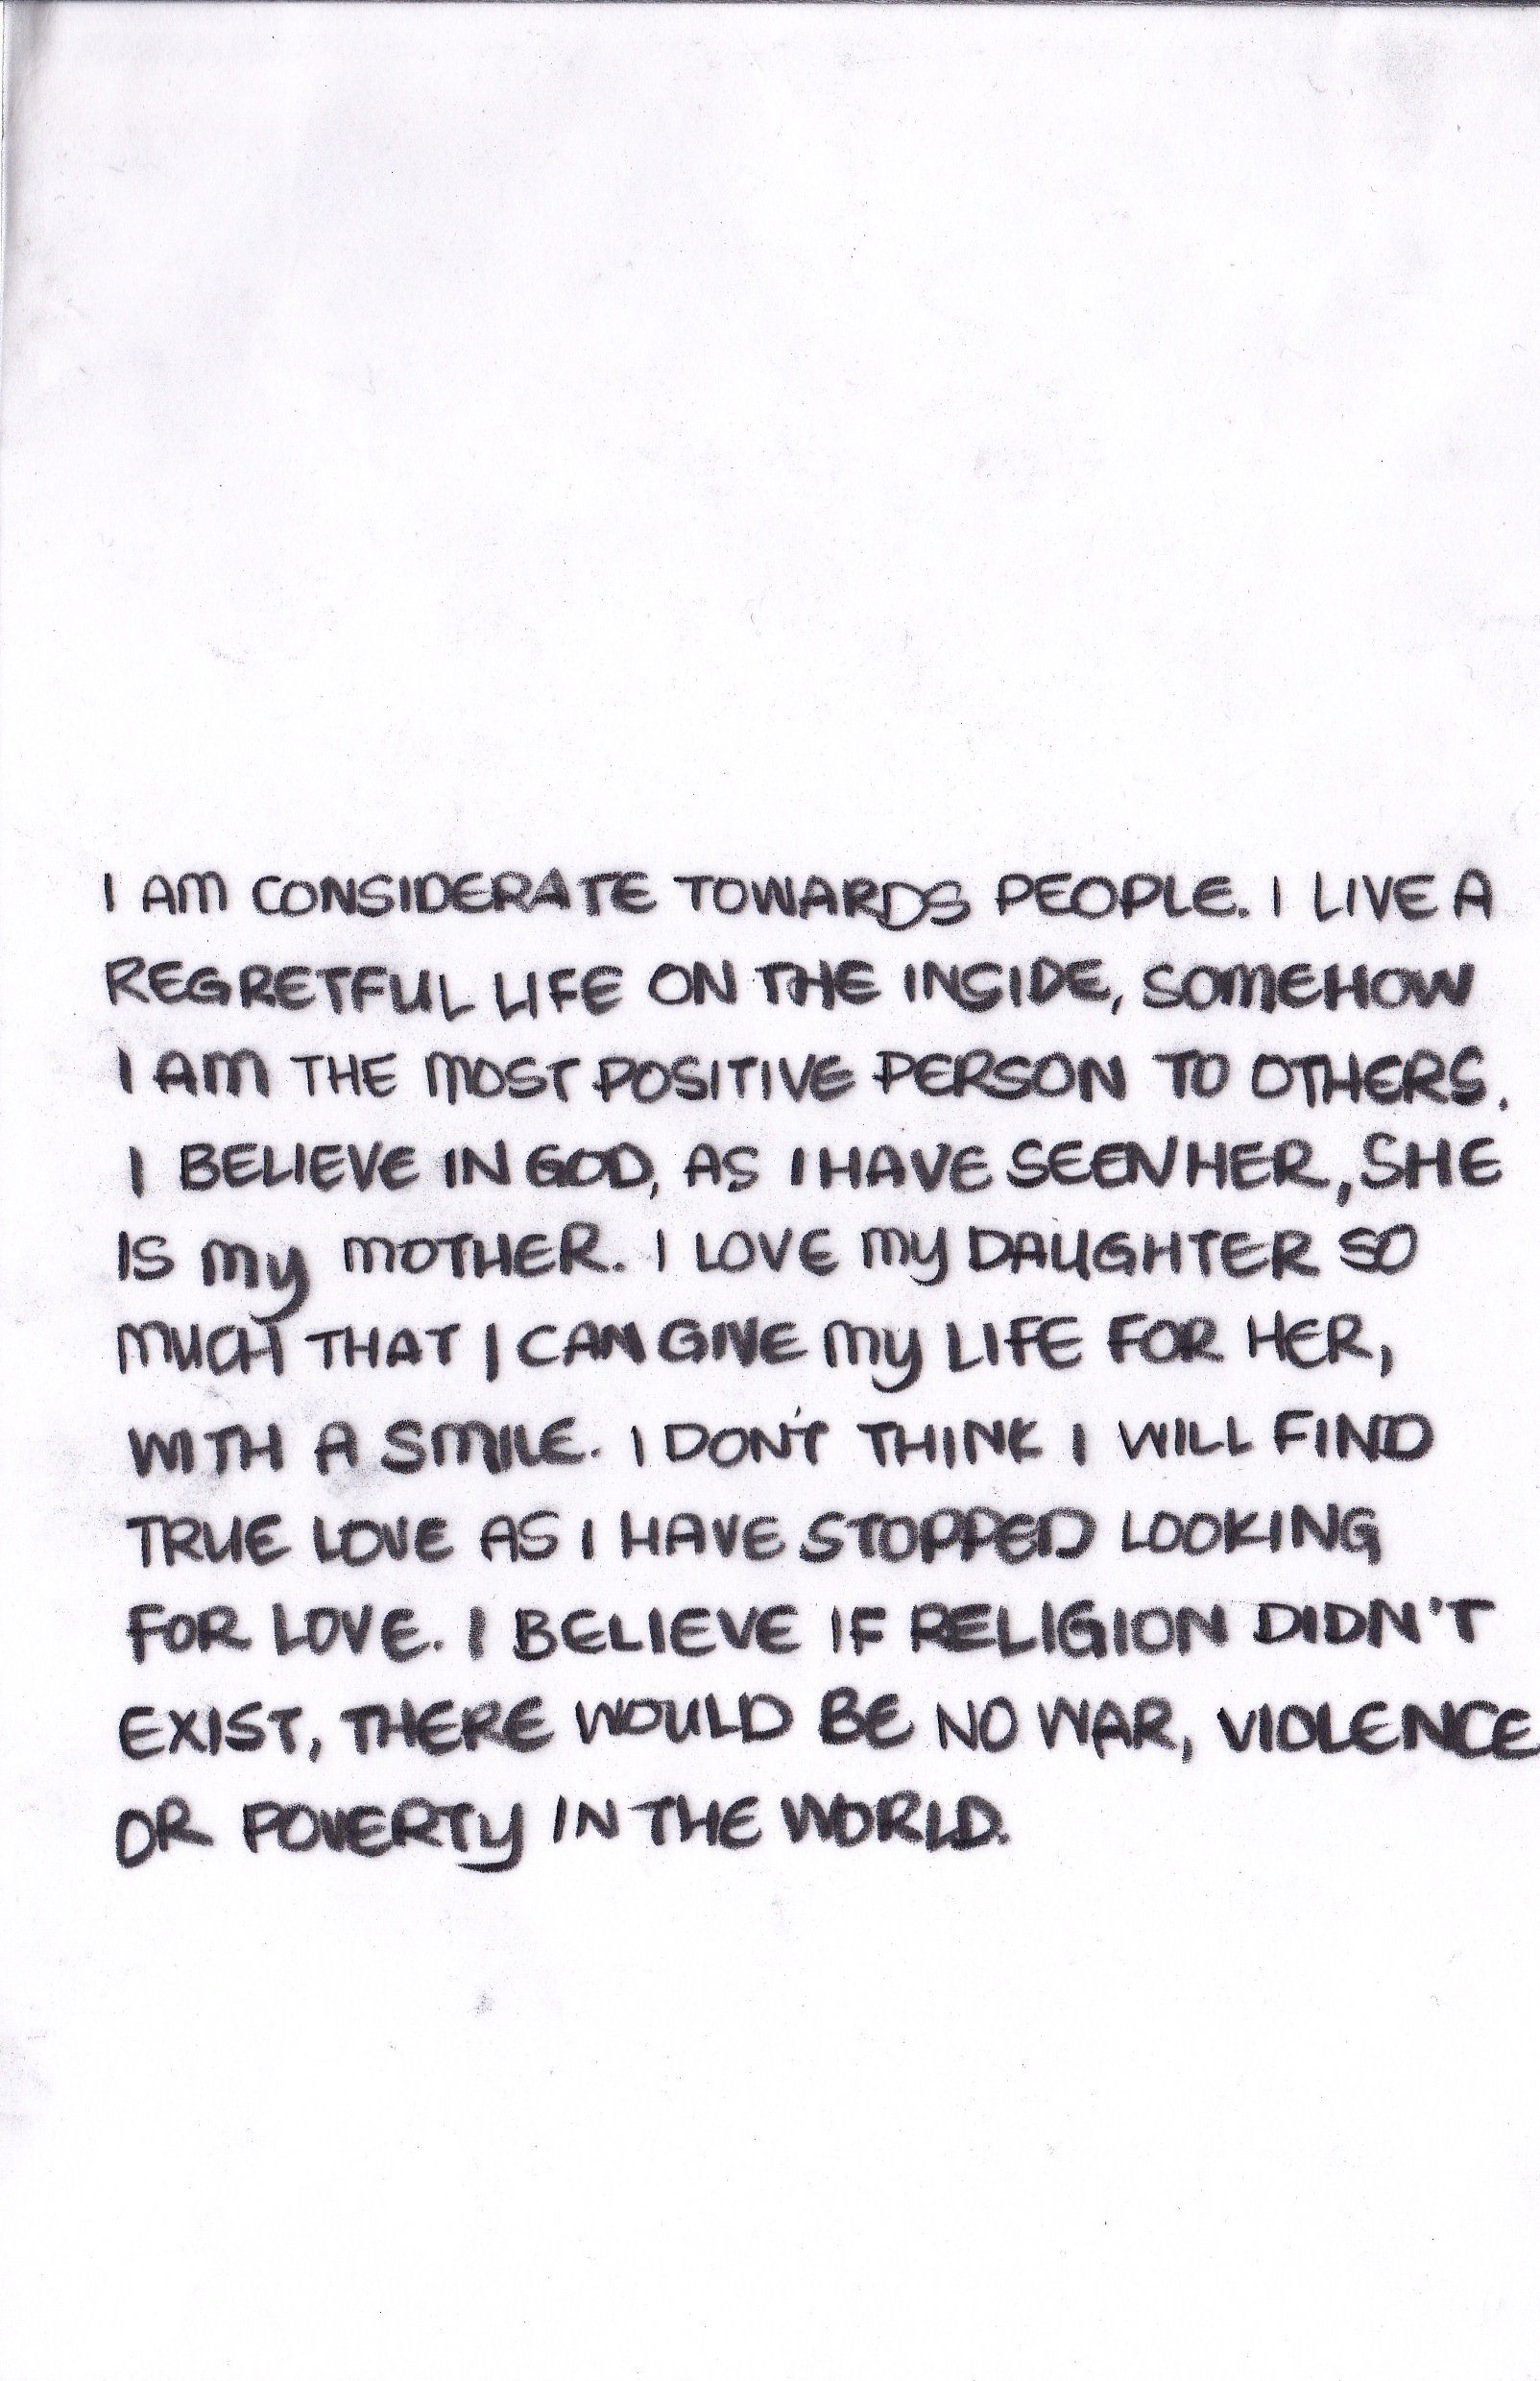 I AM CONSIDERATE TOWARDS PEOPLE. I LIVE A
REGRETFUL LIFE ON THE INSIDE, SOMEHOW
I AM THE MOST POSITIVE PERSON TO OTHERS.
I BELIEVE IN GOD, AS I HAVE SEEN HER, SHE
IS MY MOTHER. I LOVE MY DAUGHTER SO
MUCH THAT I CAN GIVE MY LIFE FOR HER,
WITH A SMILE. I DON'T THINK I WILL FIND
TRUE LOVE AS I HAVE STOPPED LOOKING
FOR LOVE. I BELIEVE IF RELIGION DIDN'T
EXIST, THERE WOULD BE NO WAR, VIOLENCE
OR POVERTY IN THE WORLD.